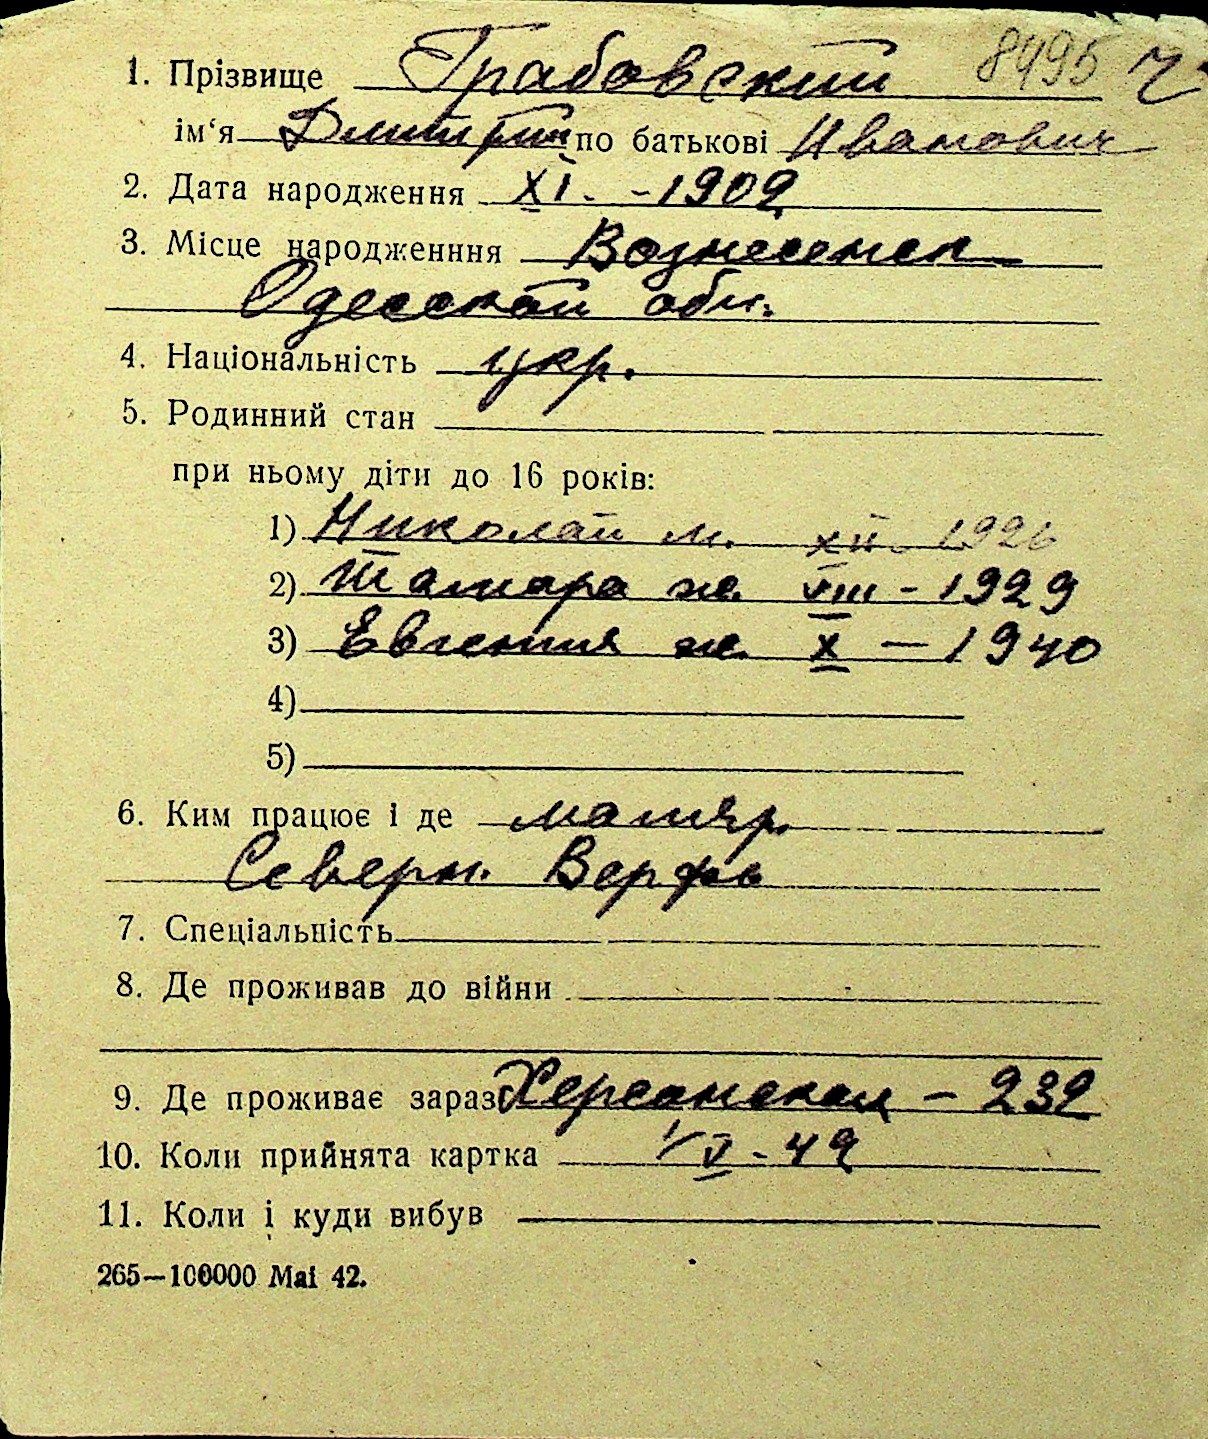 1. Прізвище Грабовский 8495 ч
ім‘я Дмитрий по батькові Иванович
2. Дата народження XI. -1902
3. Місце народженння Вознесенск
Одесской обл.
4. Національність укр.
5. Родинний стан
при ньому діти до 16 років:
1) Николай м. XII - 1926
2) Тамара ж. VIII - 1929
3) Евгения ж. X — 1940
4)
5)
6. Ким працює і де маляр.
Северн. Верфь
7. Спеціальність
8. Де проживав до війни
9. Де проживає зараз Херсонская - 232
10. Коли прийнята картка 1/V - 42
11. Коли і куди вибув
265—100000 Mai 42.